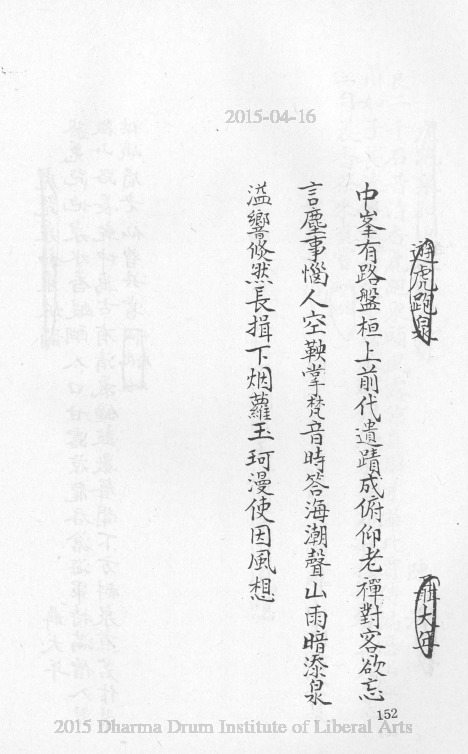 2015-04-16
遊虎跑泉
聶大年
中峯有路盤桓上前代遺蹟成俯仰老禪對客欲忘
言塵事惱人空鞅掌梵音時答海潮聲山雨暗添泉
溢響倏然長揖下烟蘿玉珂漫使因風想
152
2015 Dharma Drum Institute of Liberal Arts